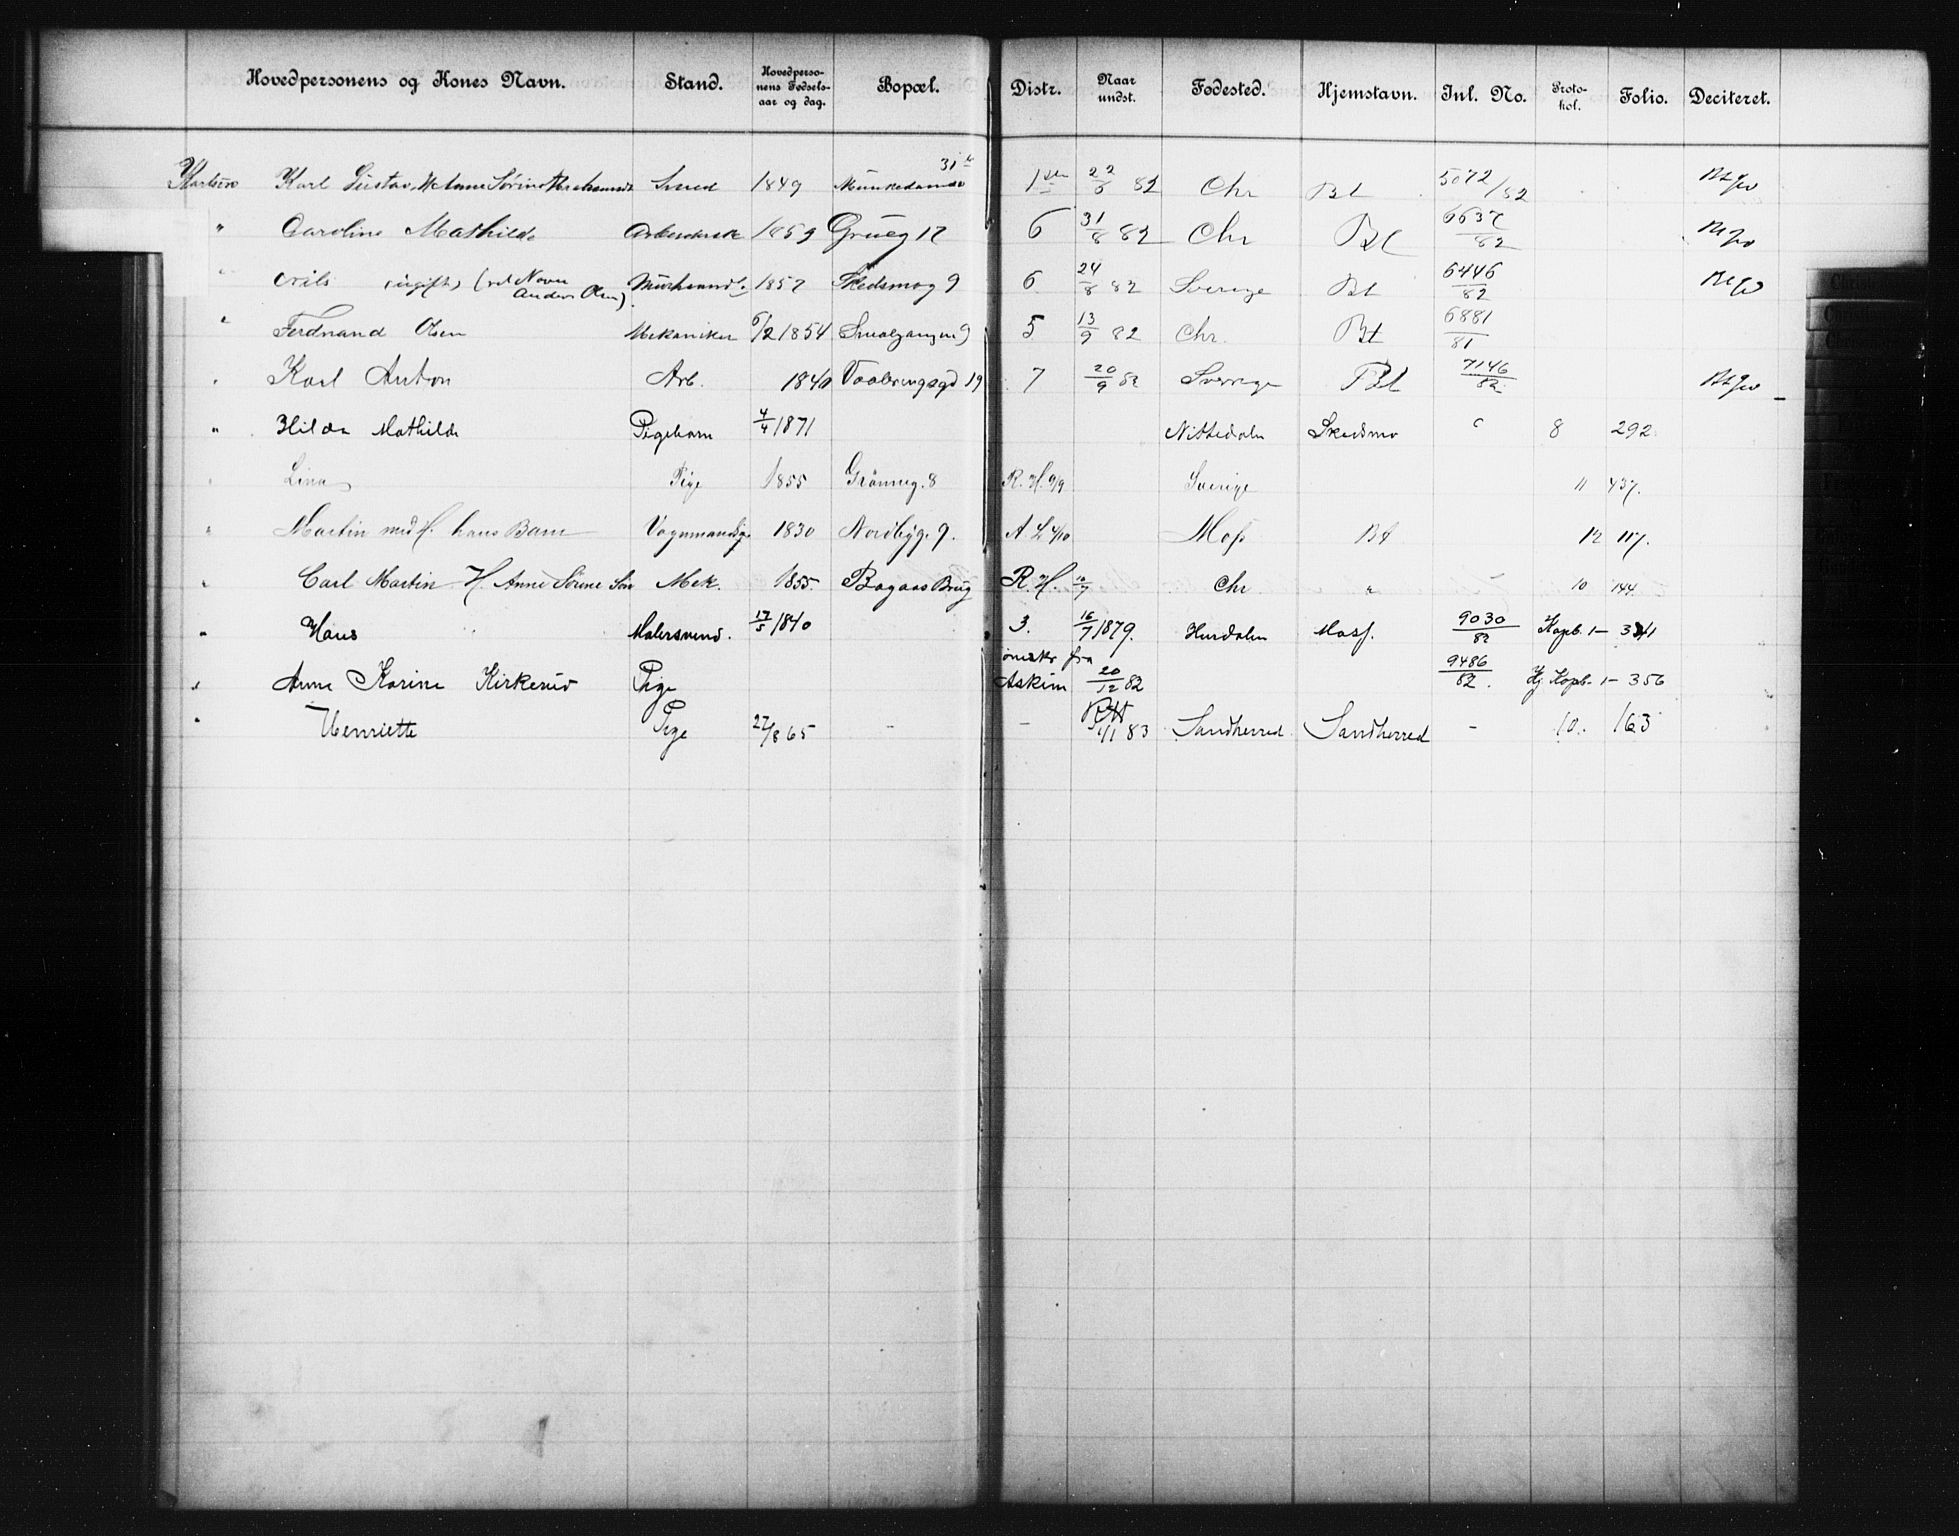 Hovedpersonens og Kones Navn. Stand. Hovedpersonens Fødselsaar og dag. Bopæl. Distr. Naar undst. Fødested. Hjemstavn. Inl. No. Protokol. Folio. Deciteret.
Karl Gustav, H. Anne Sørine Smed 1849 Munkedamsv 31 1ste 22/8 82 Chr Bt 5072/82
" Caroline Mathilde 1859 Grueg 17 6 31/8 82 Chr Bt 6637/82
" Nils (ugift) (ret Navn Anders Olsen) 1857 Skedsmog 9 6 24/8 82 Sverige Bt 6446/82
" Ferdnand Olsen Mekaniker 6/2 1854 Smalgangen 9 5 13/9 82 Chr. Bt 6881/81
" Karl Anton Arb. 1840 Vaaleringsgd 19 7 20/9 82 Sverige Bt 7146/82
" Hilda Mathilde Pigebarn 4/4 1871 Nittedalen Skedsmo " 8 292
" Lina Pige 1855 Grønneg. 8 R. H. 9/9 Sverige 11 437.
" Martin med H. hans Barn 1830 Nordbyg. 9. A L 4/10 Moss Bt 12 117.
" Carl Martin H. Anne Sørine Mek. 1855. Bagaas Brug R. H. 10/7 Chr " 10 144.
" Hans Malersvend. 17/5 1840 3. 16/7 1879. Hurdalen Moss. 9030/82 Kopb. 1 — 341
" Anne Karine Kirkerud Pige ønsker fra Askim 20/12 82 9486/82. Hj. Kopb. 1 — 356
" Henriette Pige 27/8 65 — — RH 1/1 83 Sandherred Sandherred — 10. 163